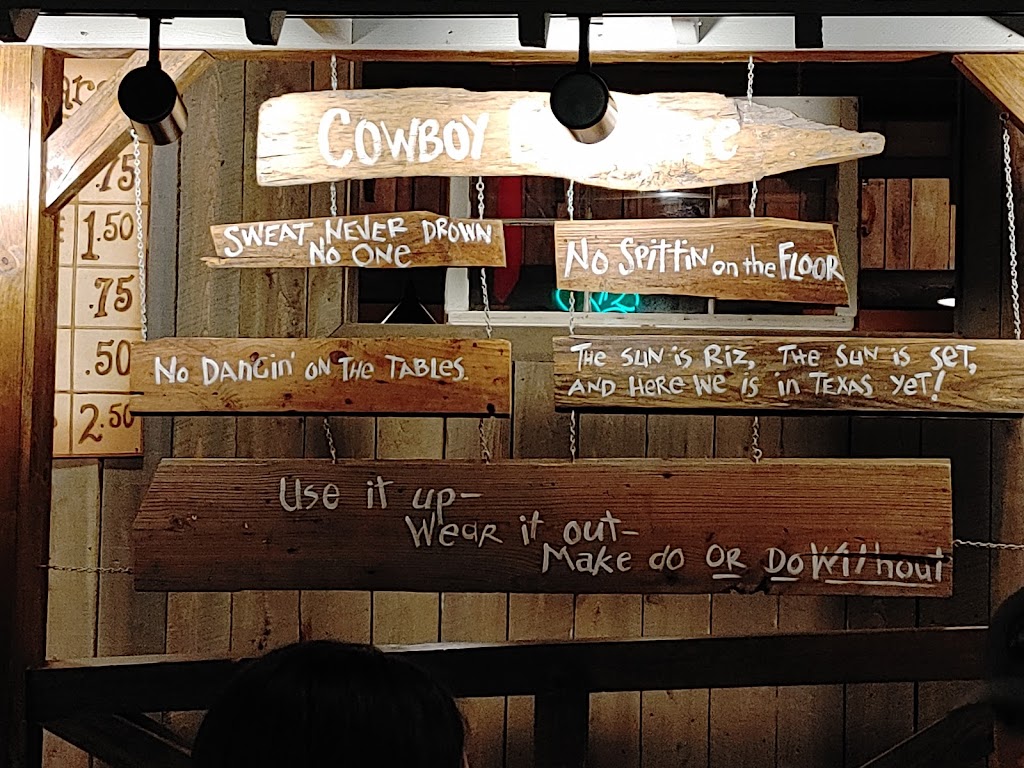 COWBOY
SWEAT NEVER DROWN
NO ONE
No SPiTTiN' on the FLOOR
No DANCiN' ON THE TABLES.
THE SUN iS RiZ, THE SUN iS SET,
AND HERE WE iS iN TEXAS YET!
Use it up-
WEAR it out-
Make do OR Do Without
.75
1.50
.75
.50
2.50